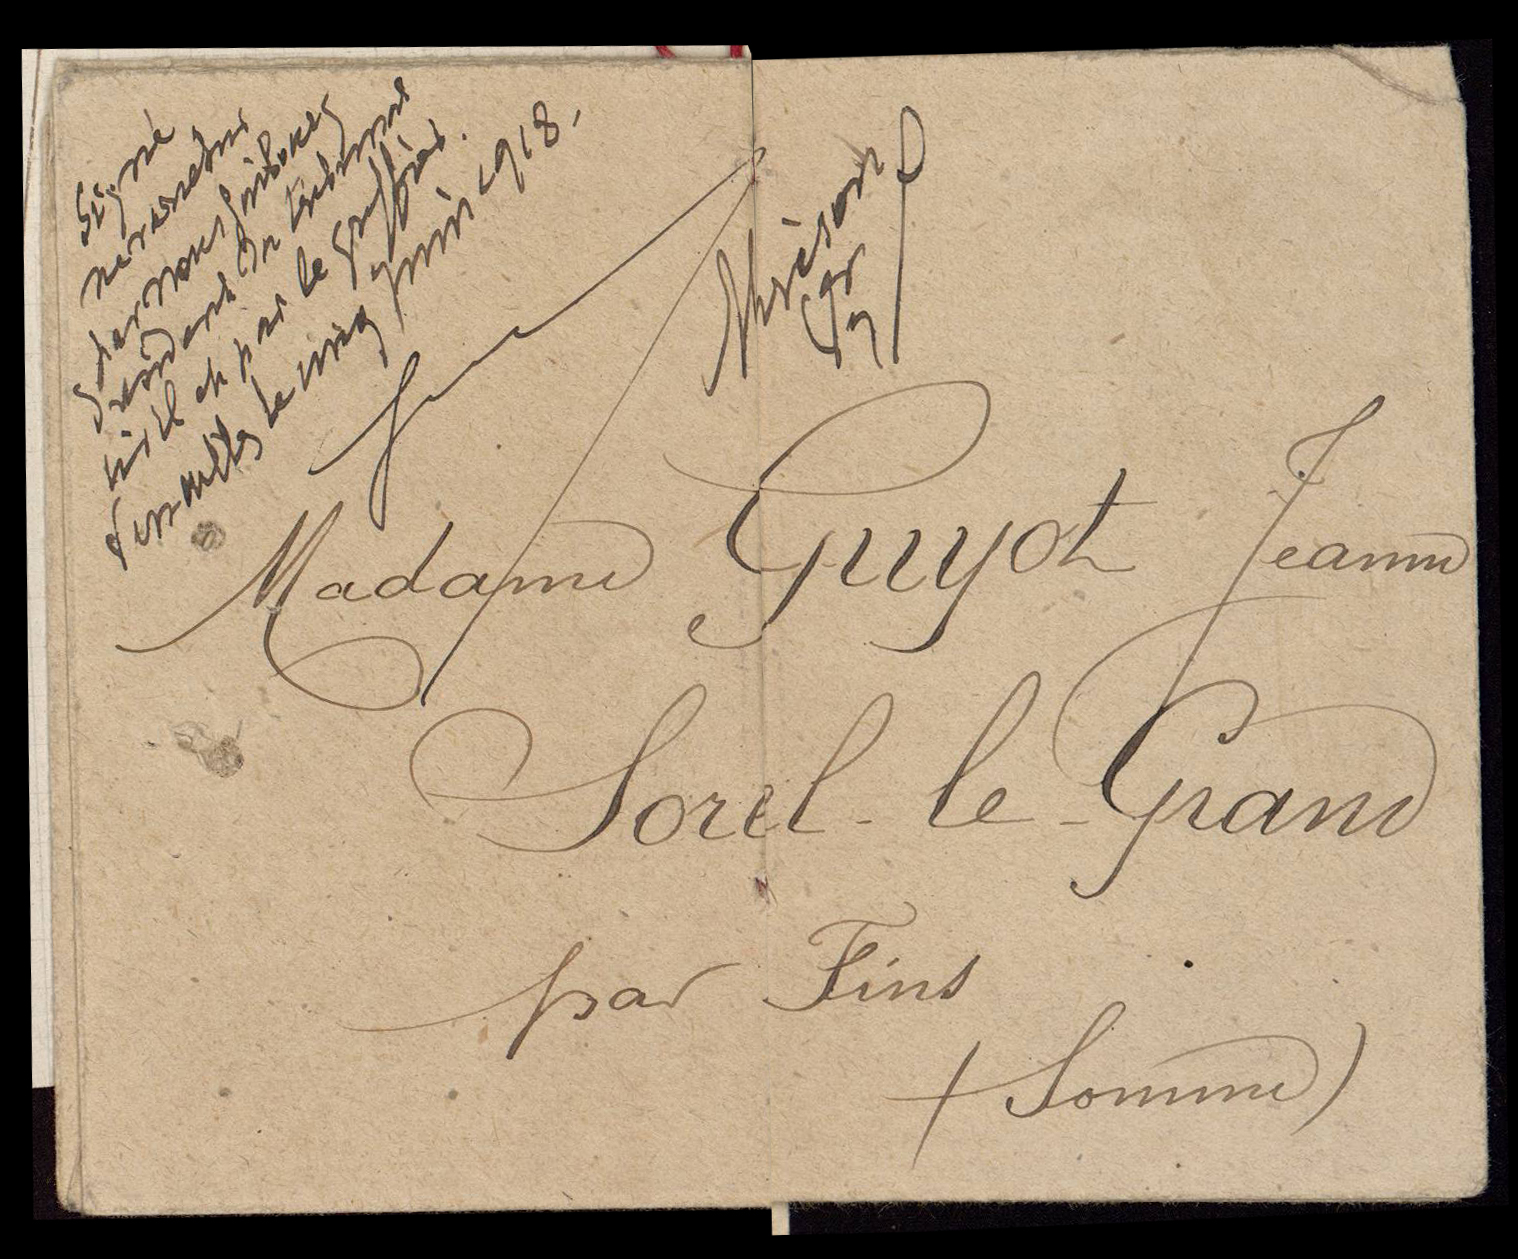 Signé
ne varietur
par nous
président du tribunal
civil et par le greffier.
Versailles le cinq juin 1918.
Madame Guyot Jeanne
Sorel-le-Grand
par Fins
(Somme)